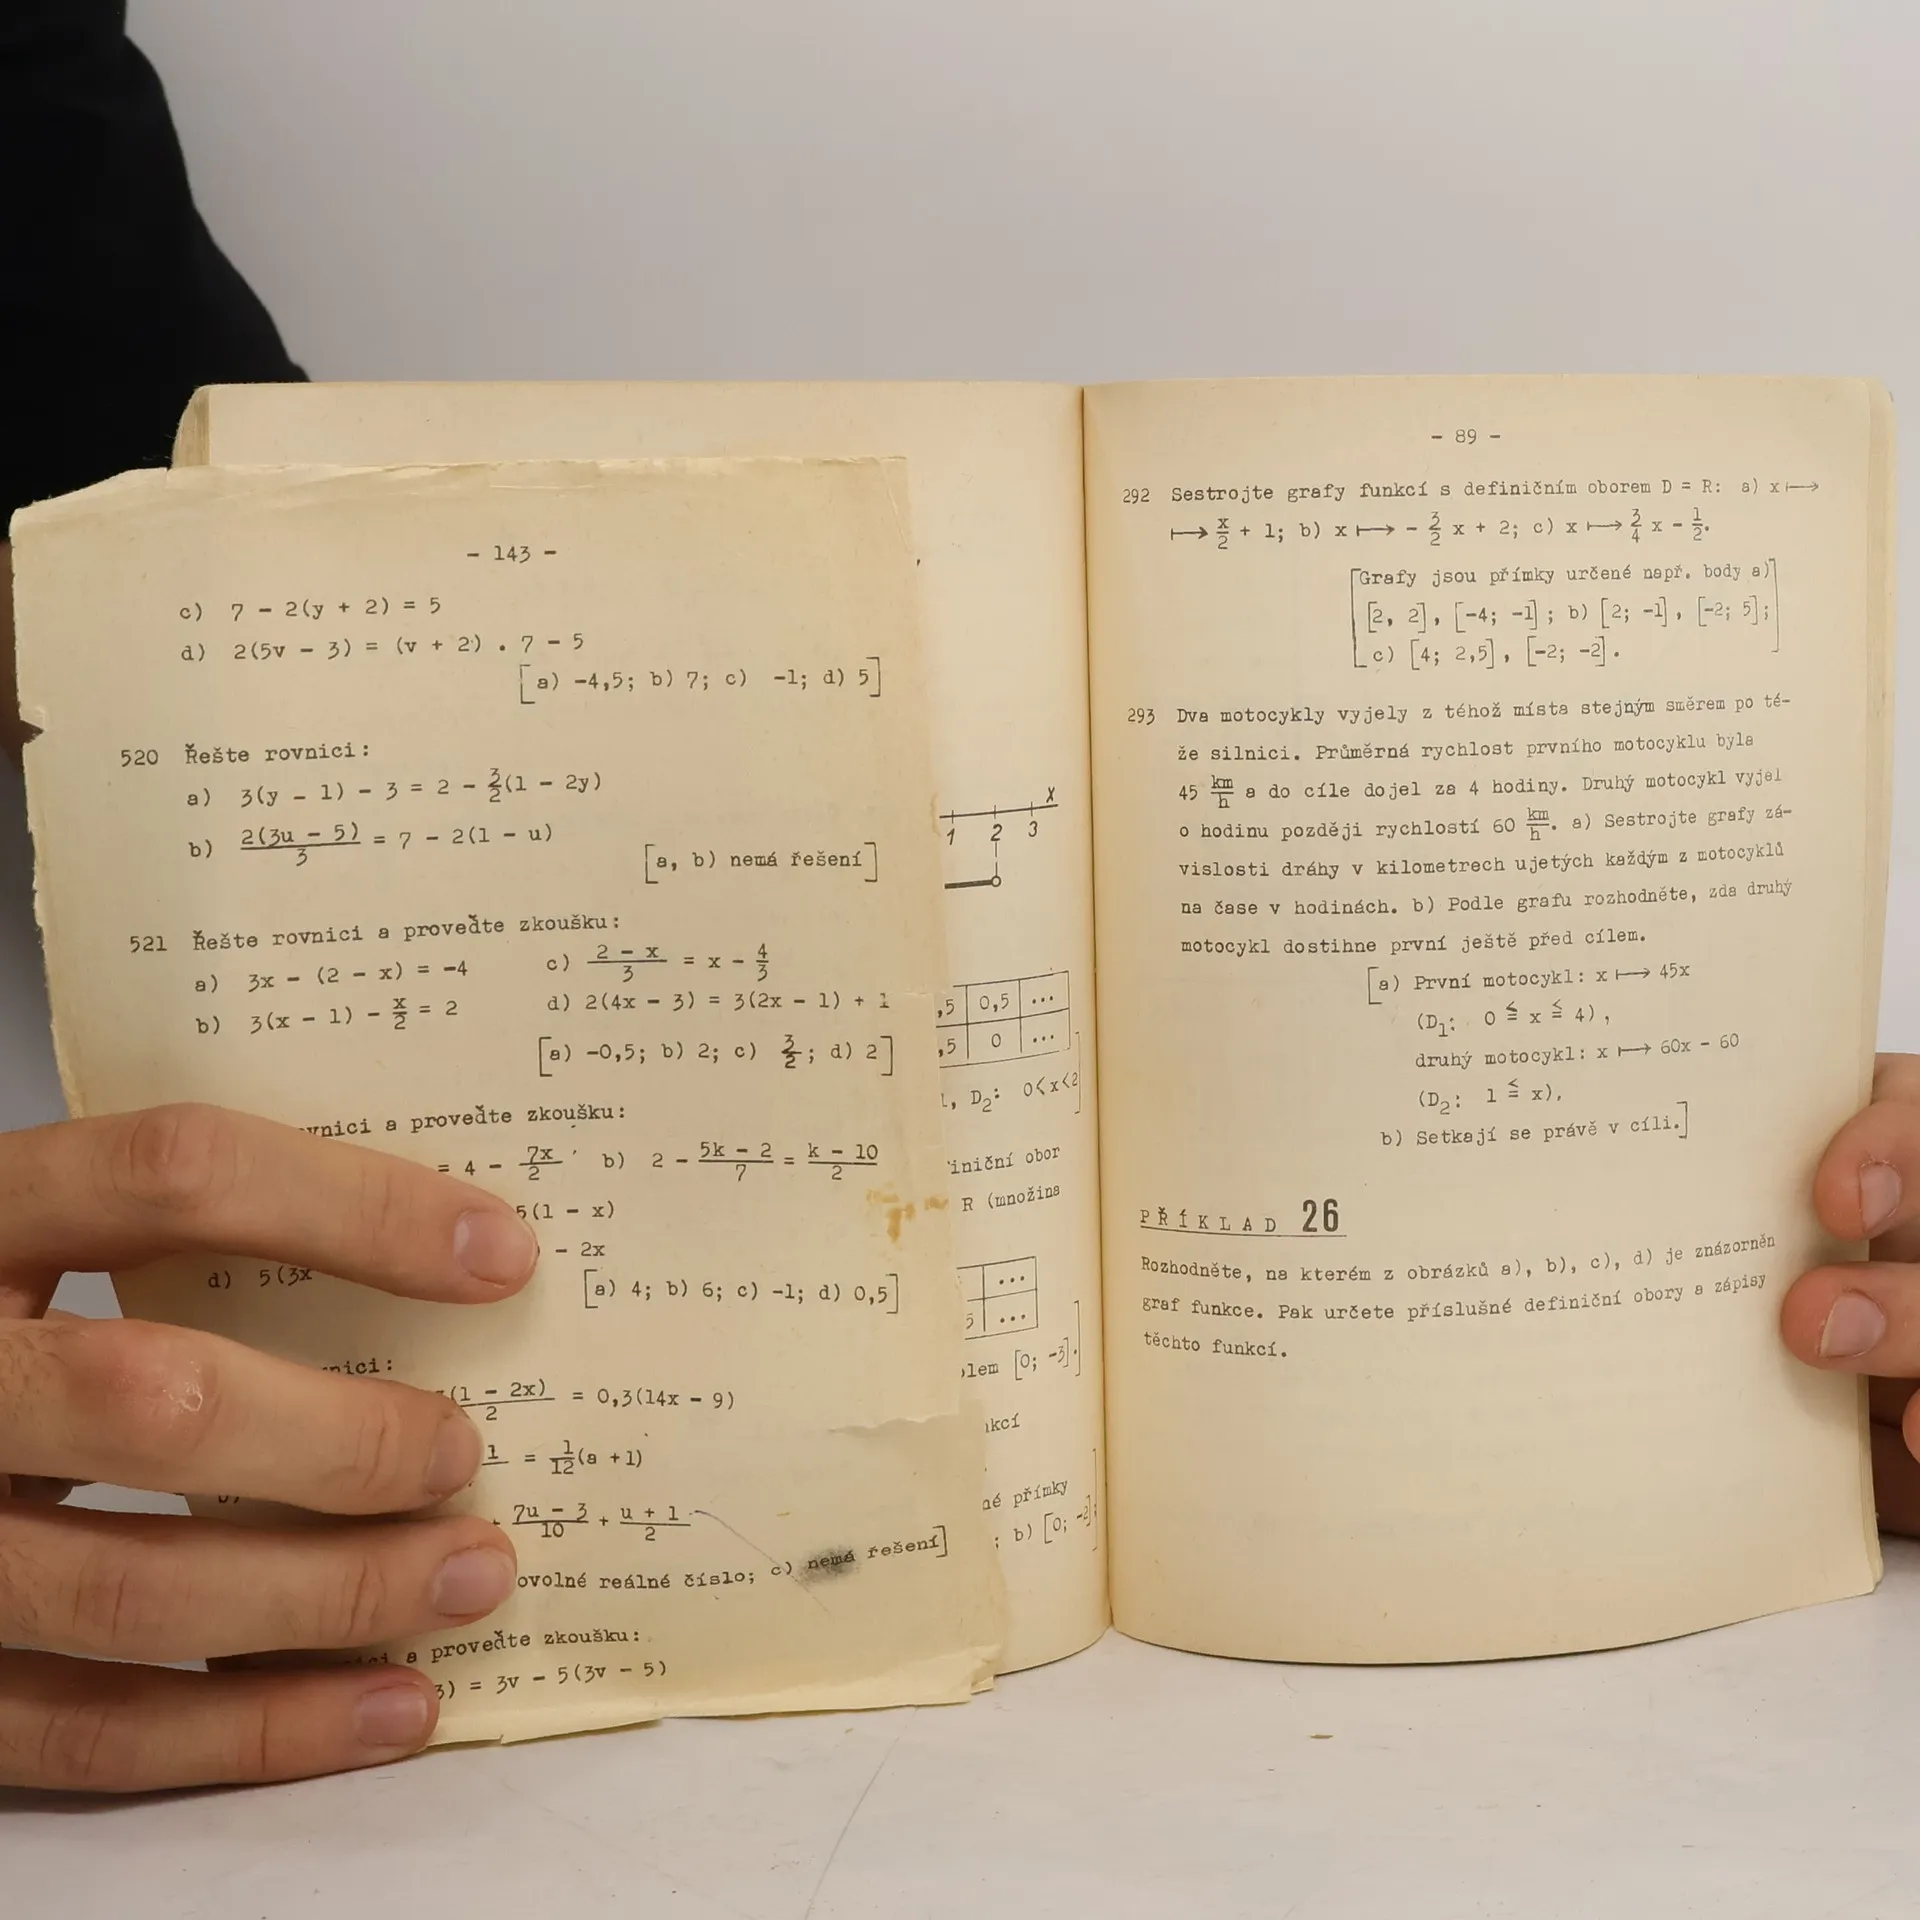 - 143 -
c) 7 - 2(y + 2) = 5
d) 2(5v - 3) = (v + 2) . 7 - 5
[a) -4,5; b) 7; c) -1; d) 5]
520 Řešte rovnici:
a) 3(y - 1) - 3 = 2 - 3/2(1 - 2y)
b) 2(3u - 5)/3 = 7 - 2(1 - u)
[a, b) nemá řešení]
521 Řešte rovnici a proveďte zkoušku:
a) 3x - (2 - x) = -4 c) 2 - x/3 = x - 4/3
b) 3(x - 1) - x/2 = 2 d) 2(4x - 3) = 3(2x - 1) + 1
[a) -0,5; b) 2; c) 3/2; d) 2]
a proveďte zkoušku:
= 4 - 7x/2 b) 2 - 5k - 2/7 = k - 10/2
5(1 - x)
- 2x
d) 5(3x
[a) 4; b) 6; c) -1; d) 0,5]
(1 - 2x)/2 = 0,3(14x - 9)
1 = 1/12(a + 1)
+ 7u - 3/10 + u + 1/2
reálné číslo; c) nemá řešení]
a proveďte zkoušku:
3) = 3v - 5(3v - 5)
x
1 2 3
,5 0,5 ...
,5 0 ...
D2: 0<x<2]
obor
R (množina
...
5 ...
[0; -3].]
přímky
; b) [0; -2]
- 89 -
292 Sestrojte grafy funkcí s definičním oborem D = R: a) x ↦
↦ x/2 + 1; b) x ↦ - 3/2 x + 2; c) x ↦ 3/4 x - 1/2.
[Grafy jsou přímky určené např. body a)
[2, 2], [-4; -1]; b) [2; -1], [-2; 5];
c) [4; 2,5], [-2; -2].]
293 Dva motocykly vyjely z téhož místa stejným směrem po té-
že silnici. Průměrná rychlost prvního motocyklu byla
45 km/h a do cíle dojel za 4 hodiny. Druhý motocykl vyjel
o hodinu později rychlostí 60 km/h. a) Sestrojte grafy zá-
vislosti dráhy v kilometrech ujetých každým z motocyklů
na čase v hodinách. b) Podle grafu rozhodněte, zda druhý
motocykl dostihne první ještě před cílem.
[a) První motocykl: x ↦ 45x
(D1: 0 ≦ x ≦ 4),
druhý motocykl: x ↦ 60x - 60
(D2: 1 ≦ x),
b) Setkají se právě v cíli.]
PŘÍKLAD 26
Rozhodněte, na kterém z obrázků a), b), c), d) je znázorněn
graf funkce. Pak určete příslušné definiční obory a zápisy
těchto funkcí.